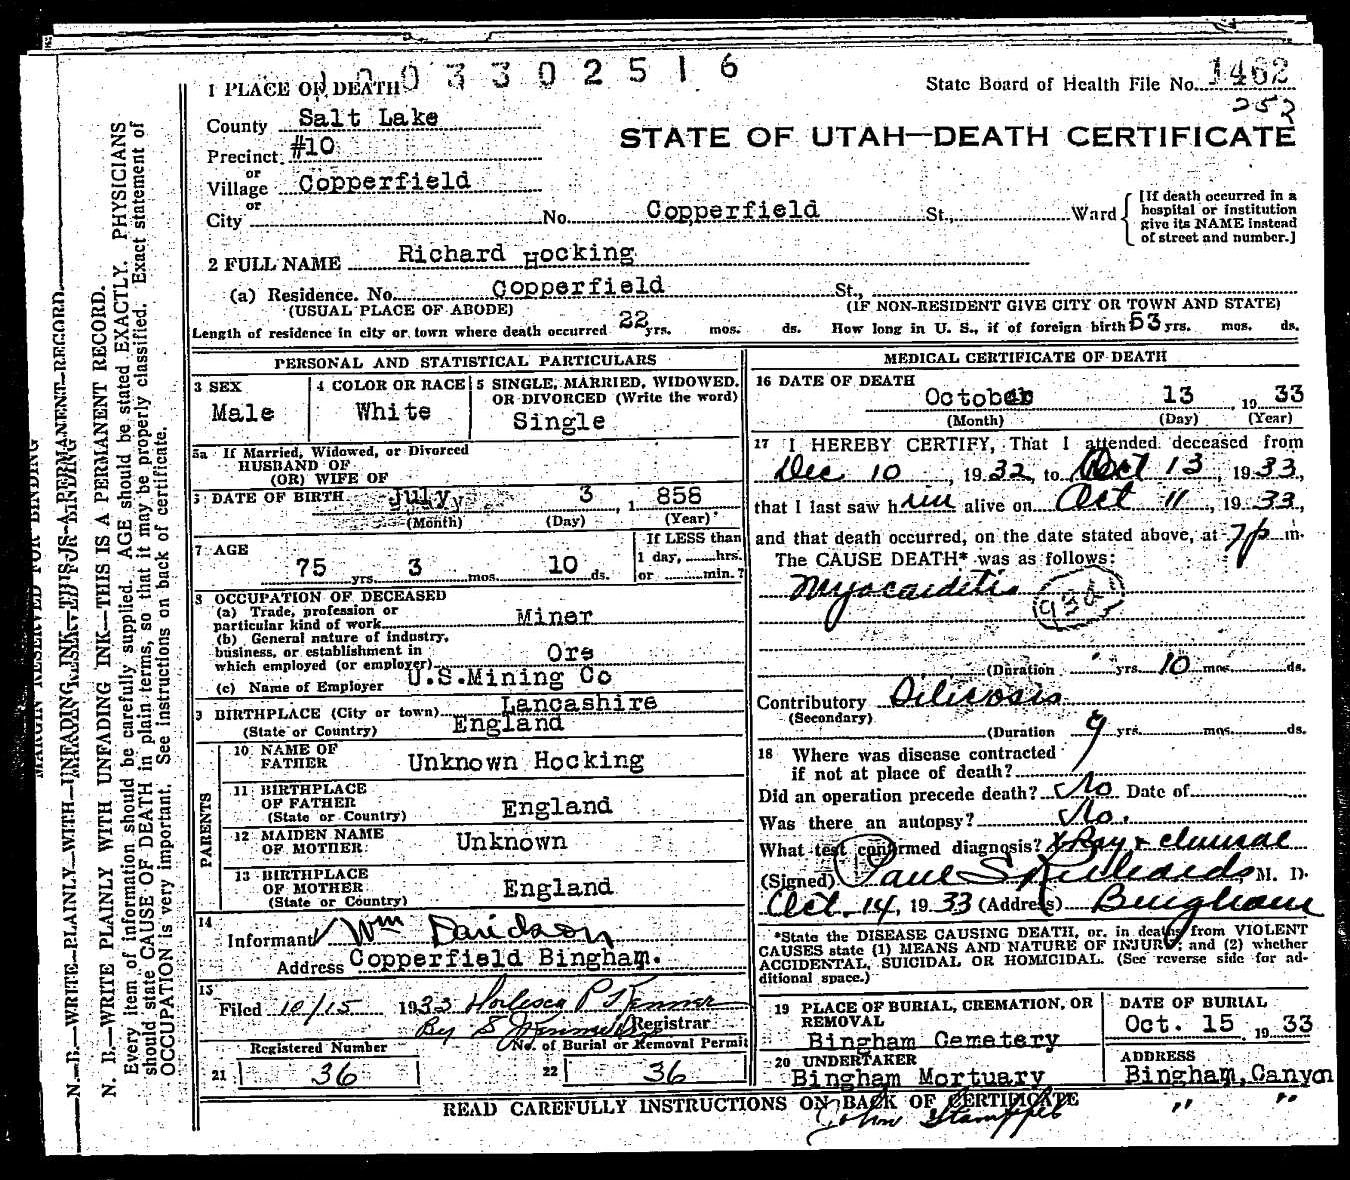 1003302516
State Board of Health File No. 1462
252
STATE OF UTAH—DEATH CERTIFICATE
1 PLACE OF DEATH
County Salt Lake
Precinct #10
or
Village Copperfield
or
City No. Copperfield St., Ward
[If death occurred in a
hospital or institution
give its NAME instead
of street and number.]
2 FULL NAME Richard Hocking
(a) Residence. No. Copperfield St.,
(USUAL PLACE OF ABODE) (IF NON-RESIDENT GIVE CITY OR TOWN AND STATE)
Length of residence in city or town where death occurred 22 yrs. mos. ds. How long in U. S., if of foreign birth 53 yrs. mos. ds.
PERSONAL AND STATISTICAL PARTICULARS
3 SEX
Male
4 COLOR OR RACE
White
5 SINGLE, MARRIED, WIDOWED,
OR DIVORCED (Write the word)
Single
5a If Married, Widowed, or Divorced
HUSBAND OF
(OR) WIFE OF
6 DATE OF BIRTH July 3, 1858
(Month) (Day) (Year)
7 AGE
75 yrs. 3 mos. 10 ds.
If LESS than
1 day, hrs.
or min.?
8 OCCUPATION OF DECEASED
(a) Trade, profession or
particular kind of work Miner
(b) General nature of industry,
business, or establishment in
which employed (or employer) Ore
(c) Name of Employer U.S.Mining Co
9 BIRTHPLACE (City or town) Lancashire
(State or Country) England
PARENTS
10 NAME OF
FATHER Unknown Hocking
11 BIRTHPLACE
OF FATHER England
(State or Country)
12 MAIDEN NAME
OF MOTHER Unknown
13 BIRTHPLACE
OF MOTHER England
(State or Country)
14
Informant Wm Davidson
Address Copperfield Bingham.
15
Filed 10/15 1933
By Registrar
Registered Number
21 36
No. of Burial or Removal Permit
22 36
MEDICAL CERTIFICATE OF DEATH
16 DATE OF DEATH
October 13, 1933
(Month) (Day) (Year)
17 I HEREBY CERTIFY, That I attended deceased from
Dec 10, 1932, to Oct 13, 1933,
that I last saw him alive on Oct 11, 1933,
and that death occurred, on the date stated above, at 7 p m.
The CAUSE DEATH* was as follows:
Myocarditis
(Duration yrs. 10 mos. ds.
Contributory Silicosis
(Secondary)
(Duration 9 yrs. mos. ds.
18 Where was disease contracted
if not at place of death?
Did an operation precede death? No Date of
Was there an autopsy? No.
What test confirmed diagnosis? X Ray + clinical
(Signed) Paul S Richards, M. D.
Oct. 14, 1933 (Address) Bingham
*State the DISEASE CAUSING DEATH, or, in deaths from VIOLENT
CAUSES state (1) MEANS AND NATURE OF INJURY; and (2) whether
ACCIDENTAL, SUICIDAL OR HOMICIDAL. (See reverse side for ad-
ditional space.)
19 PLACE OF BURIAL, CREMATION, OR
REMOVAL
Bingham Cemetery
DATE OF BURIAL
Oct. 15, 1933
20 UNDERTAKER
Bingham Mortuary
ADDRESS
Bingham, Canyon
READ CAREFULLY INSTRUCTIONS ON BACK OF CERTIFICATE
John " "
MARGIN RESERVED FOR BINDING
N. B.—WRITE PLAINLY WITH UNFADING INK—THIS IS A PERMANENT RECORD.
N. B.—WRITE PLAINLY WITH UNFADING INK—THIS IS A PERMANENT RECORD.
Every item of information should be carefully supplied. AGE should be stated EXACTLY. PHYSICIANS
should state CAUSE OF DEATH in plain terms, so that it may be properly classified. Exact statement of
OCCUPATION is very important. See instructions on back of certificate.